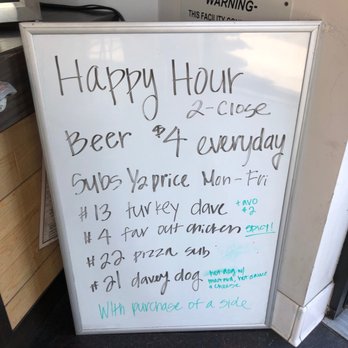 WARNING-
THIS FACILITY
Happy Hour
2-Close
Beer $4 everyday
Subs 1/2 price Mon-Fri
#13 turkey dave +avo $2
#4 far out chicken spicy!
#22 pizza sub
#21 davey dog hot dog w/
& cheese
With purchase of a side